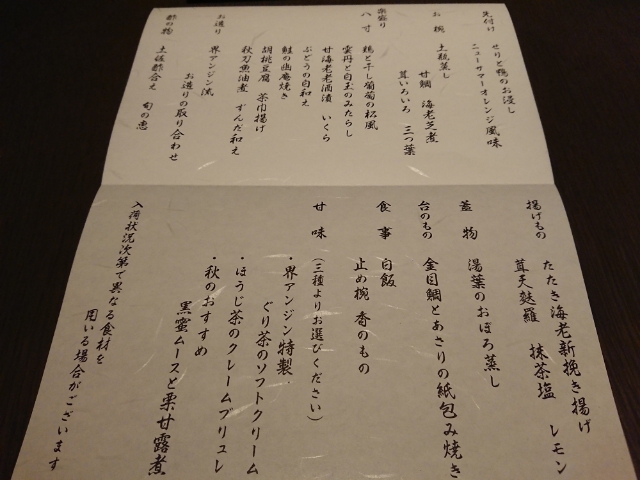 先付け　せりと鴨のお浸し
ニューサマーオレンジ風味
お椀　土瓶蒸し
甘鯛　海老芝煮
茸いろいろ　三つ葉
宝盛り
八寸　鶏と干し葡萄の松風
雲丹と白玉のみたらし
甘海老老酒漬　いくら
ぶどうの白和え
鮭の幽庵焼き
胡桃豆腐　茶巾揚げ
秋刀魚油煮　ずんだ和え
お造り　界アンジン流
お造りの取り合わせ
酢の物　土佐酢合え　旬の恵
揚げもの　たたき海老新挽き揚げ
茸天麩羅　抹茶塩　レモン
蓋物　湯葉のおぼろ蒸し
台のもの　金目鯛とあさりの紙包み焼き
食事　白飯
止め椀　香のもの
甘味　（三種よりお選びください）
・界アンジン特製
ぐり茶のソフトクリーム
・ほうじ茶のクレームブリュレ
・秋のおすすめ
黒蜜ムースと栗甘露煮
入荷状況次第で異なる食材を
用いる場合がございます